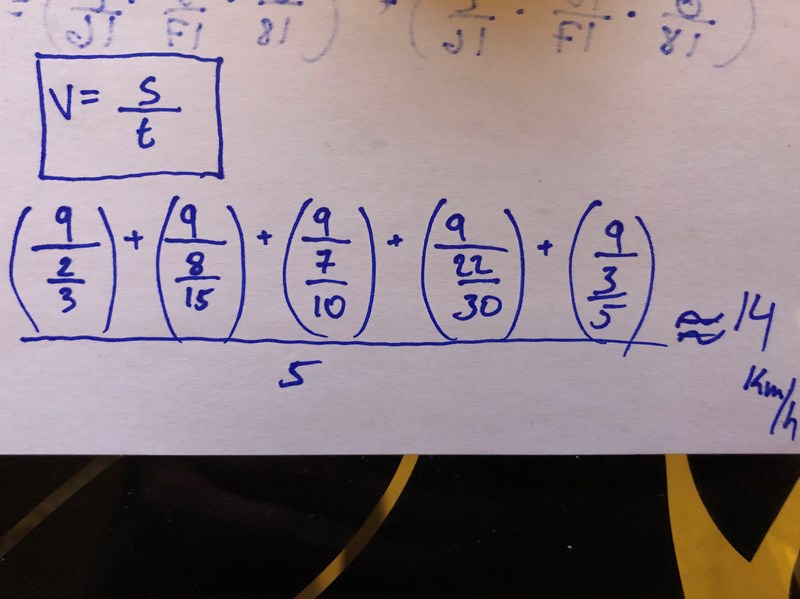 V = s/t
(9/(2/3)) + (9/(8/15)) + (9/(7/10)) + (9/(22/30)) + (9/(3/5))
5
≈ 14
Km/h